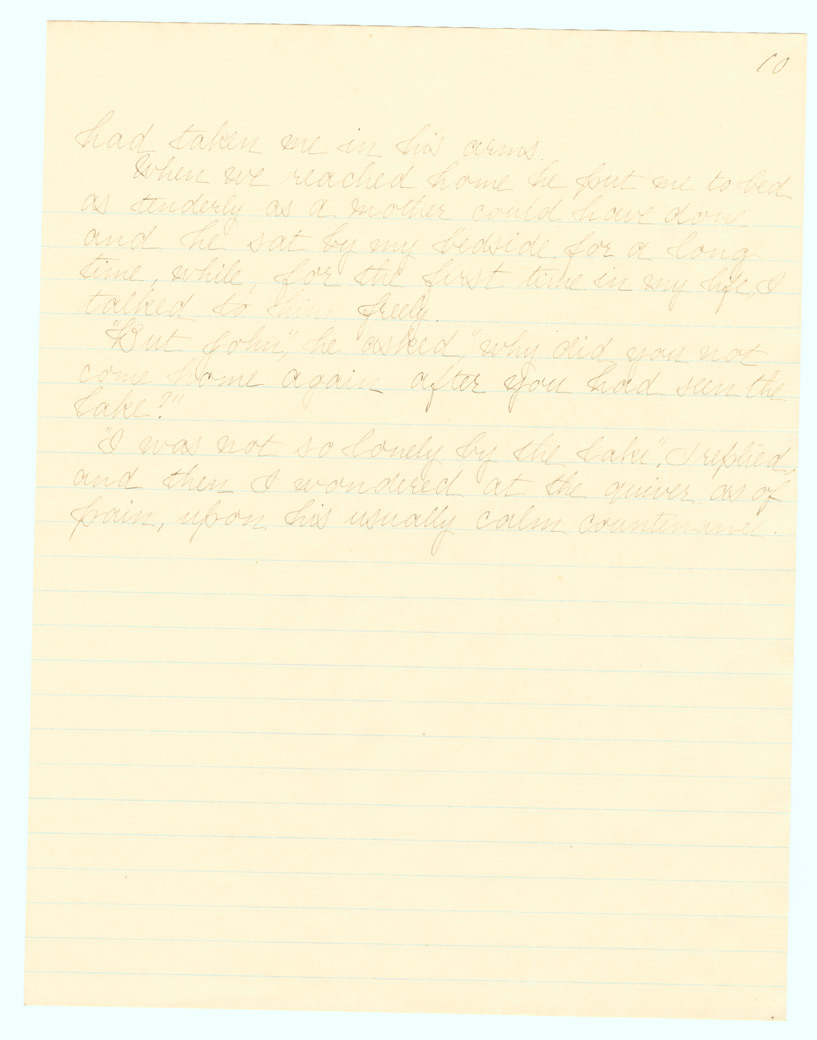 10
had taken me in his arms.
When we reached home he put me to bed
as tenderly as a mother could have done
and he sat by my bedside for a long
time, while, for the first time in my life, I
talked to him freely.
"But John", he asked, "why did you not
come home again after you had seen the
lake?"
"I was not so lonely by the lake". I replied,
and then I wondered at the quiver, as of
pain, upon his usually calm countenance.